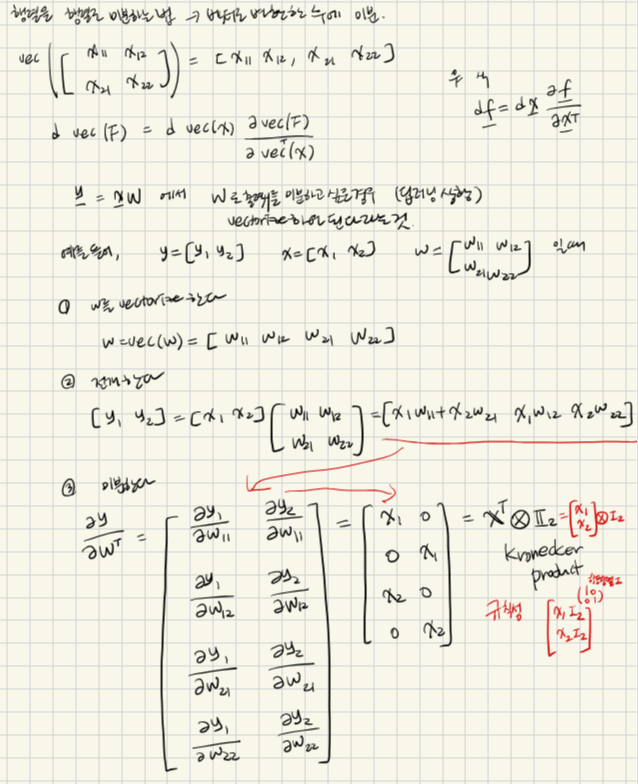 행렬을 행렬로 미분하는 법 → 벡터로 변환한 후에 미분.
vec([x11 x12; x21 x22]) = [x11 x12, x21 x22]
d vec(F) = d vec(x) ∂vec(F)/∂vecᵀ(x)
df = dx ∂f/∂xᵀ
y = xW 에서 W로 미분하고 싶을 경우 (딥러닝 상황)
vectorize하면 된다라는 것.
예를 들어, y=[y1 y2] x=[x1 x2] W=[w11 w12; w21 w22] 일때
① W를 vectorize 한다
w=vec(w) = [w11 w12 w21 w22]
② 전개한다
[y1 y2]=[x1 x2][w11 w12; w21 w22]=[x1w11+x2w21 x1w12 x2w22]
③ 미분한다
∂y/∂wᵀ = [∂y1/∂w11 ∂y2/∂w11; ∂y1/∂w12 ∂y2/∂w12; ∂y1/∂w21 ∂y2/∂w21; ∂y1/∂w22 ∂y2/∂w22] = [x1 0; 0 x1; x2 0; 0 x2] = xᵀ⊗I2 =[x1; x2]⊗I2
Kronecker
product
(1 0; 0 1)
규칙성 [x1I2; x2I2]